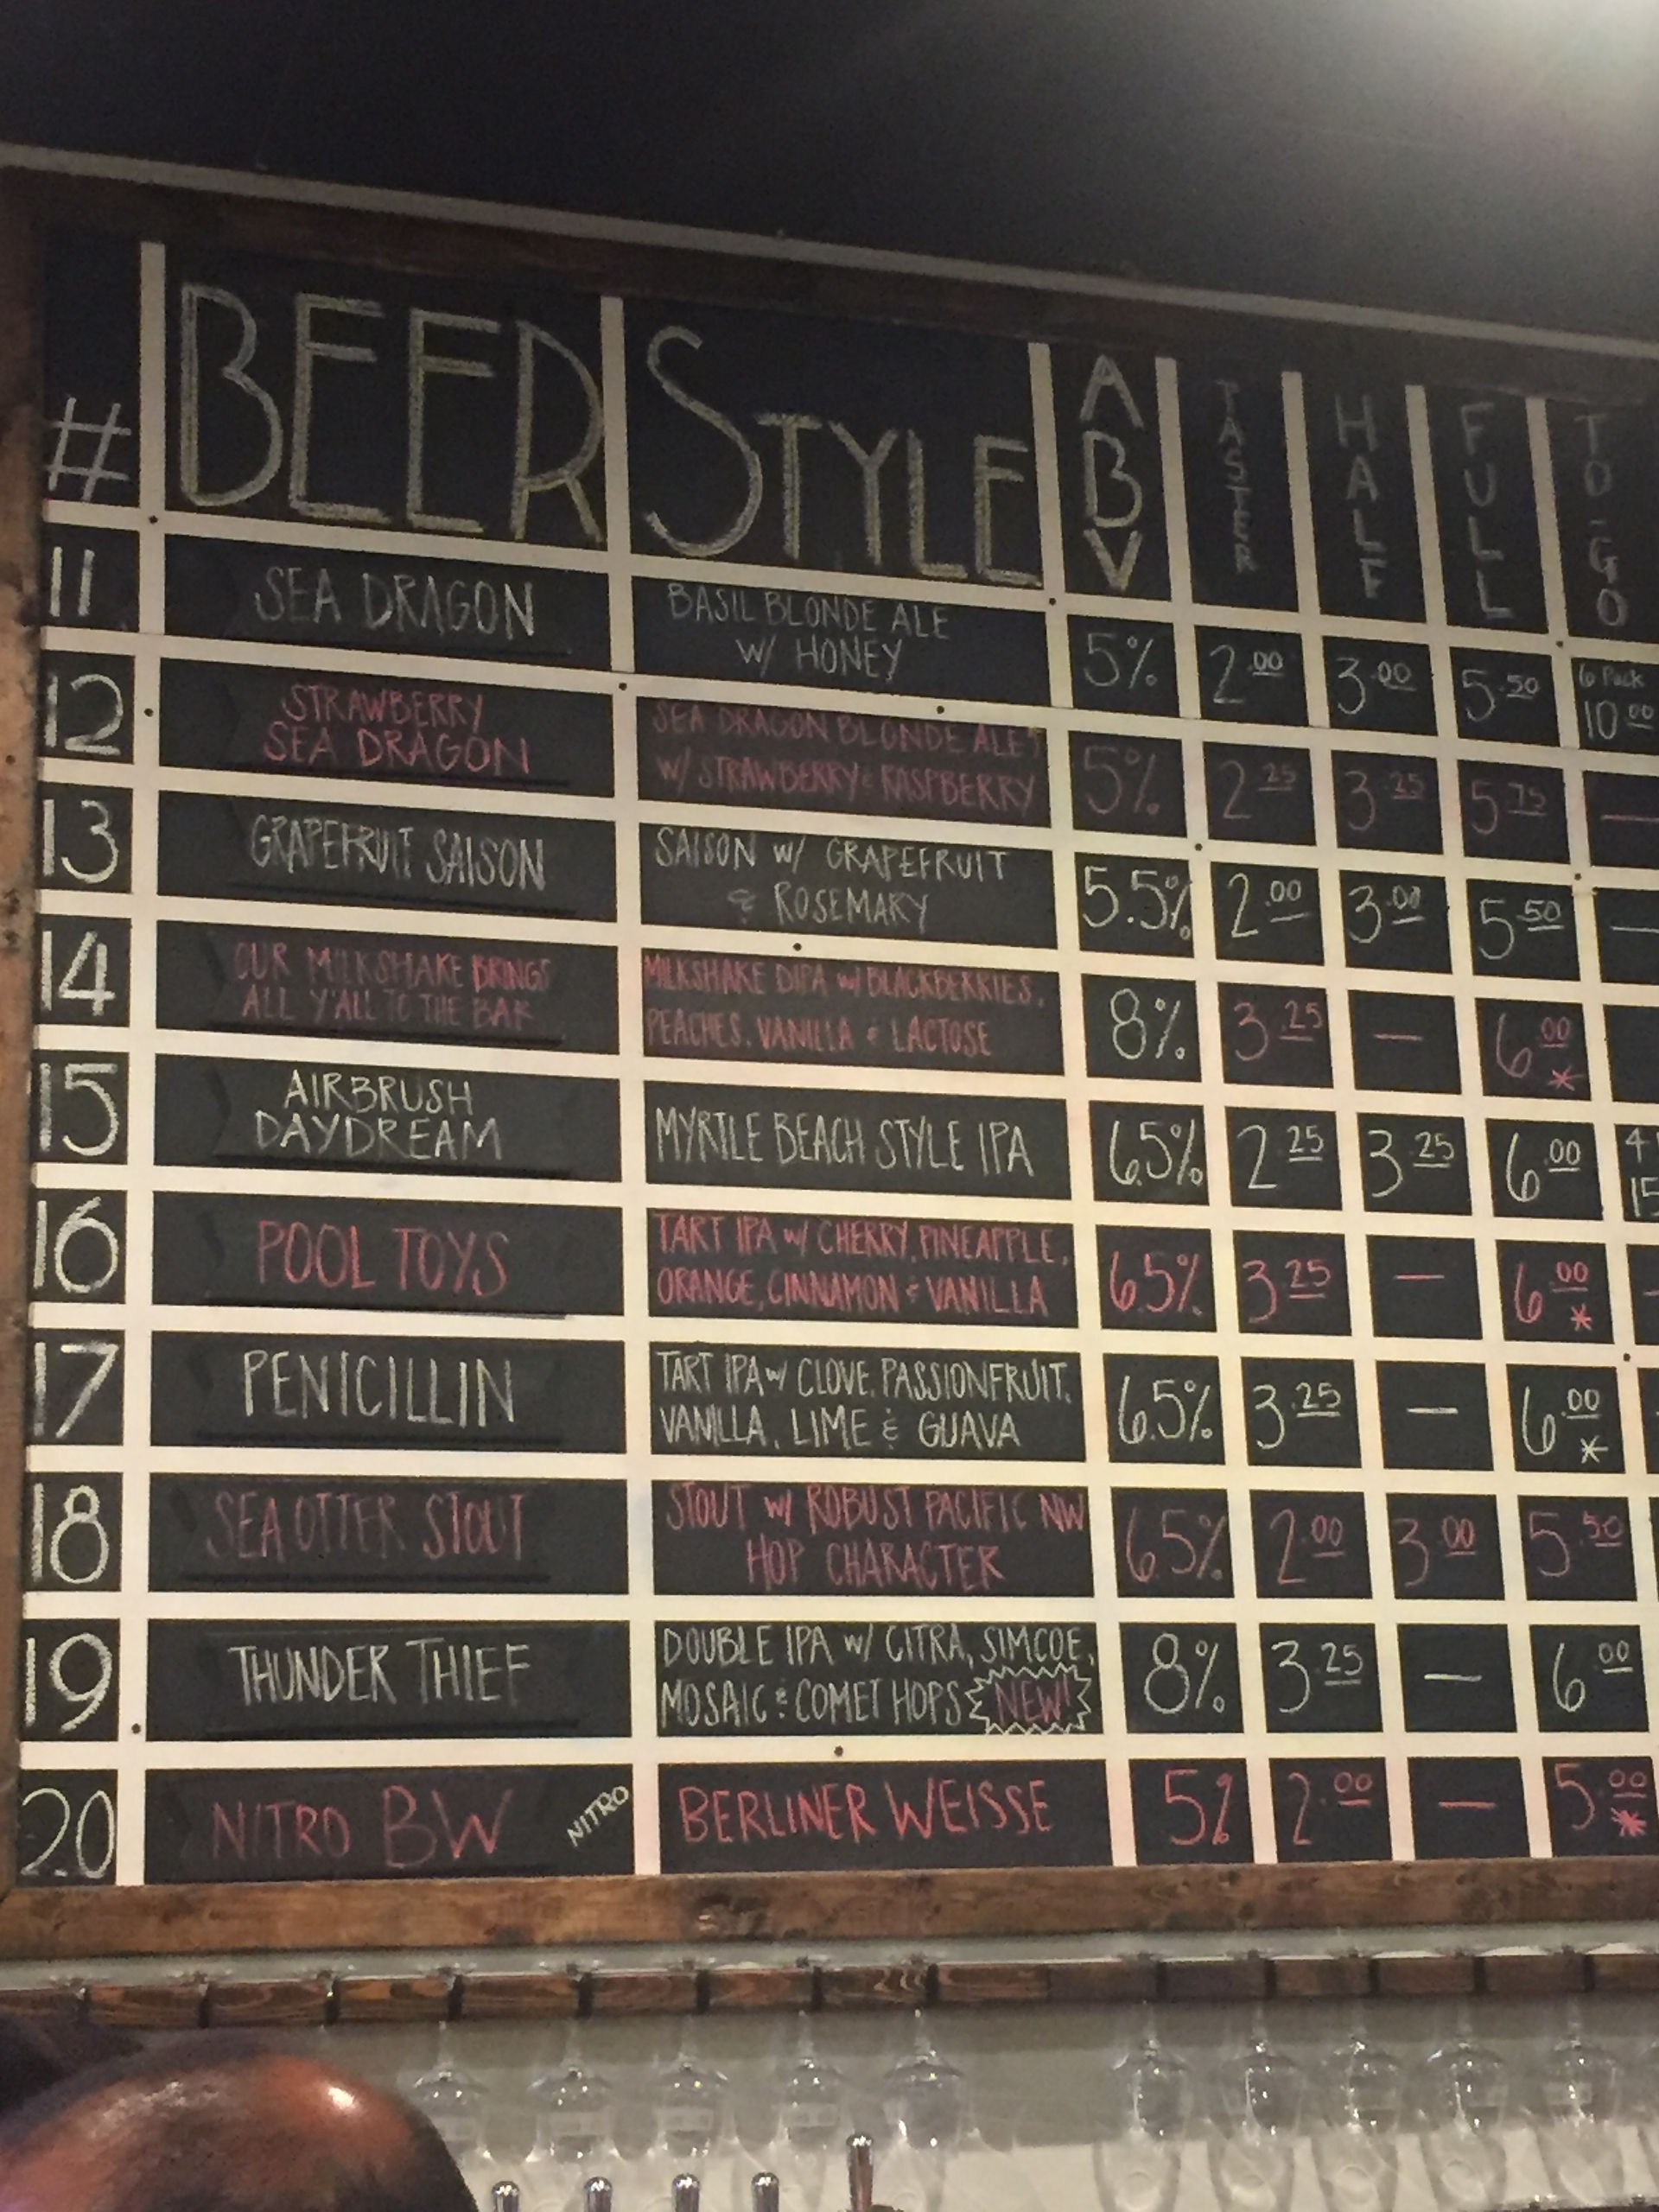 # BEER STYLE ABV TASTER HALF FULL TO-GO
11 SEA DRAGON BASIL BLONDE ALE
W/ HONEY 5% 2.00 3.00 5.50 6 Pack
10.00
12 STRAWBERRY
SEA DRAGON SEA DRAGON BLONDE ALE
W/ STRAWBERRY & RASPBERRY 5% 2.25 3.25 5.75 —
13 GRAPEFRUIT SAISON SAISON W/ GRAPEFRUIT
& ROSEMARY 5.5% 2.00 3.00 5.50 —
14 OUR MILKSHAKE BRINGS
ALL Y'ALL TO THE BAR MILKSHAKE DIPA W/ BLACKBERRIES,
PEACHES, VANILLA & LACTOSE 8% 3.25 — 6.00 *
15 AIRBRUSH
DAYDREAM MYRTLE BEACH STYLE IPA 6.5% 2.25 3.25 6.00 4
15
16 POOL TOYS TART IPA W/ CHERRY, PINEAPPLE,
ORANGE, CINNAMON & VANILLA 6.5% 3.25 — 6.00 *
17 PENICILLIN TART IPA W/ CLOVE, PASSIONFRUIT,
VANILLA, LIME & GUAVA 6.5% 3.25 — 6.00 *
18 SEA OTTER STOUT STOUT W/ ROBUST PACIFIC NW
HOP CHARACTER 6.5% 2.00 3.00 5.50
19 THUNDER THIEF DOUBLE IPA W/ CITRA, SIMCOE,
MOSAIC & COMET HOPS NEW! 8% 3.25 — 6.00
20 NITRO BW NITRO BERLINER WEISSE 5% 2.00 — 5.00 *